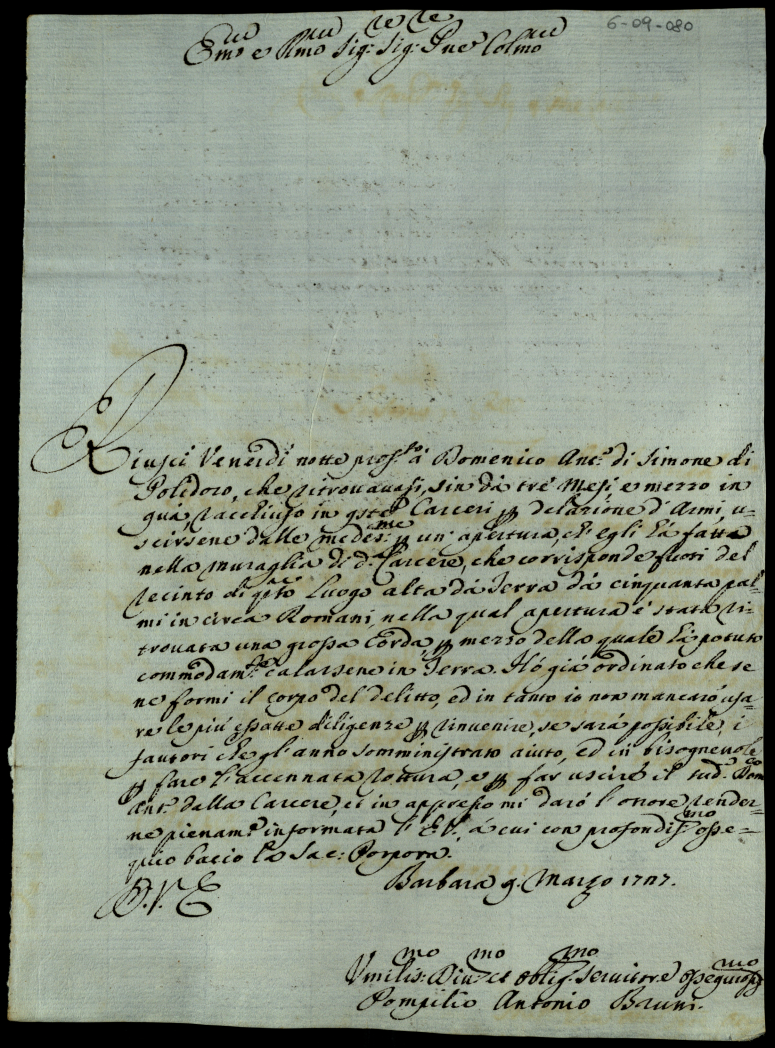 6-09-080
Emo e Rmo Sig: Sig: Pne Colmo
Riuscì Venerdì notte pross.o à Domenico Ant.o di Simone di
Polidoro, che ritrovavasi, sin dà trè Mesi e mezzo in
quà, racchiuso in q̃ste Carceri ꝑ delazione d'Armi, u=
scirsene dalle medes:me ꝑ un' apertura, ch' egli hà fatta
nella muraglia di d.a Carcere, che corrisponde fuori del
recinto di q̃sto Luogo alta dà Terra dà cinquanta pal=
mi in circa Romani, nella qual apertura è stata ri=
trovata una grossa Corda, ꝑ mezzo della quale hà potuto
commodam.te calarsene in Terra. Hò già ordinato che se
ne formi il corpo del delitto, ed in tanto io non mancarò usa=
re le più esatte diligenze ꝑ rinvenire, se sarà possibile, i
fautori che gl' anno somministrato aiuto, ed il bisognevole
ꝑ fare l' accennata rottura, e ꝑ far uscire il sud.o Dom.co
Ant.o dalla Carcere, et in appresso mi darò l' onore render=
ne pienam.te informata l' E.V. à cui con profondis.mo osse=
quio bacio la Sac: Porpora.
D.V.E.
Barbara 9. Marzo 1727.
Vmilis:mo Div:mo et oblig:mo Servitore ossequios:mo
Pompilio Antonio Bruni